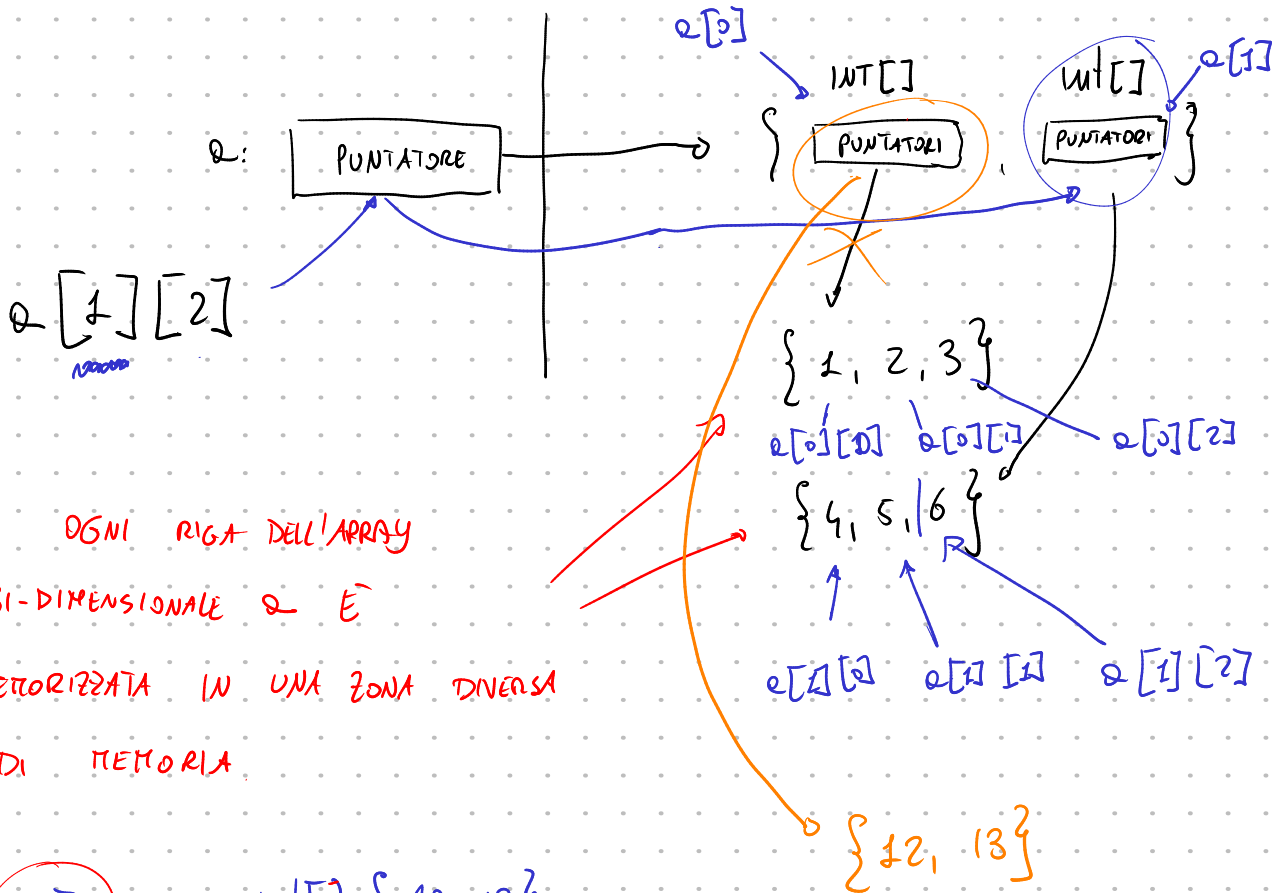 a[0]
INT[] int[] a[1]
a: PUNTATORE { PUNTATORI , PUNTATORI }
a[1][2]
{ 1, 2, 3 }
a[0][0] a[0][1] a[0][2]
{ 4, 5, 6 }
OGNI RIGA DELL'ARRAY
BI-DIMENSIONALE a È
MEMORIZZATA IN UNA ZONA DIVERSA
a[1][0] a[1][1] a[1][2]
DI MEMORIA
{ 12, 13 }